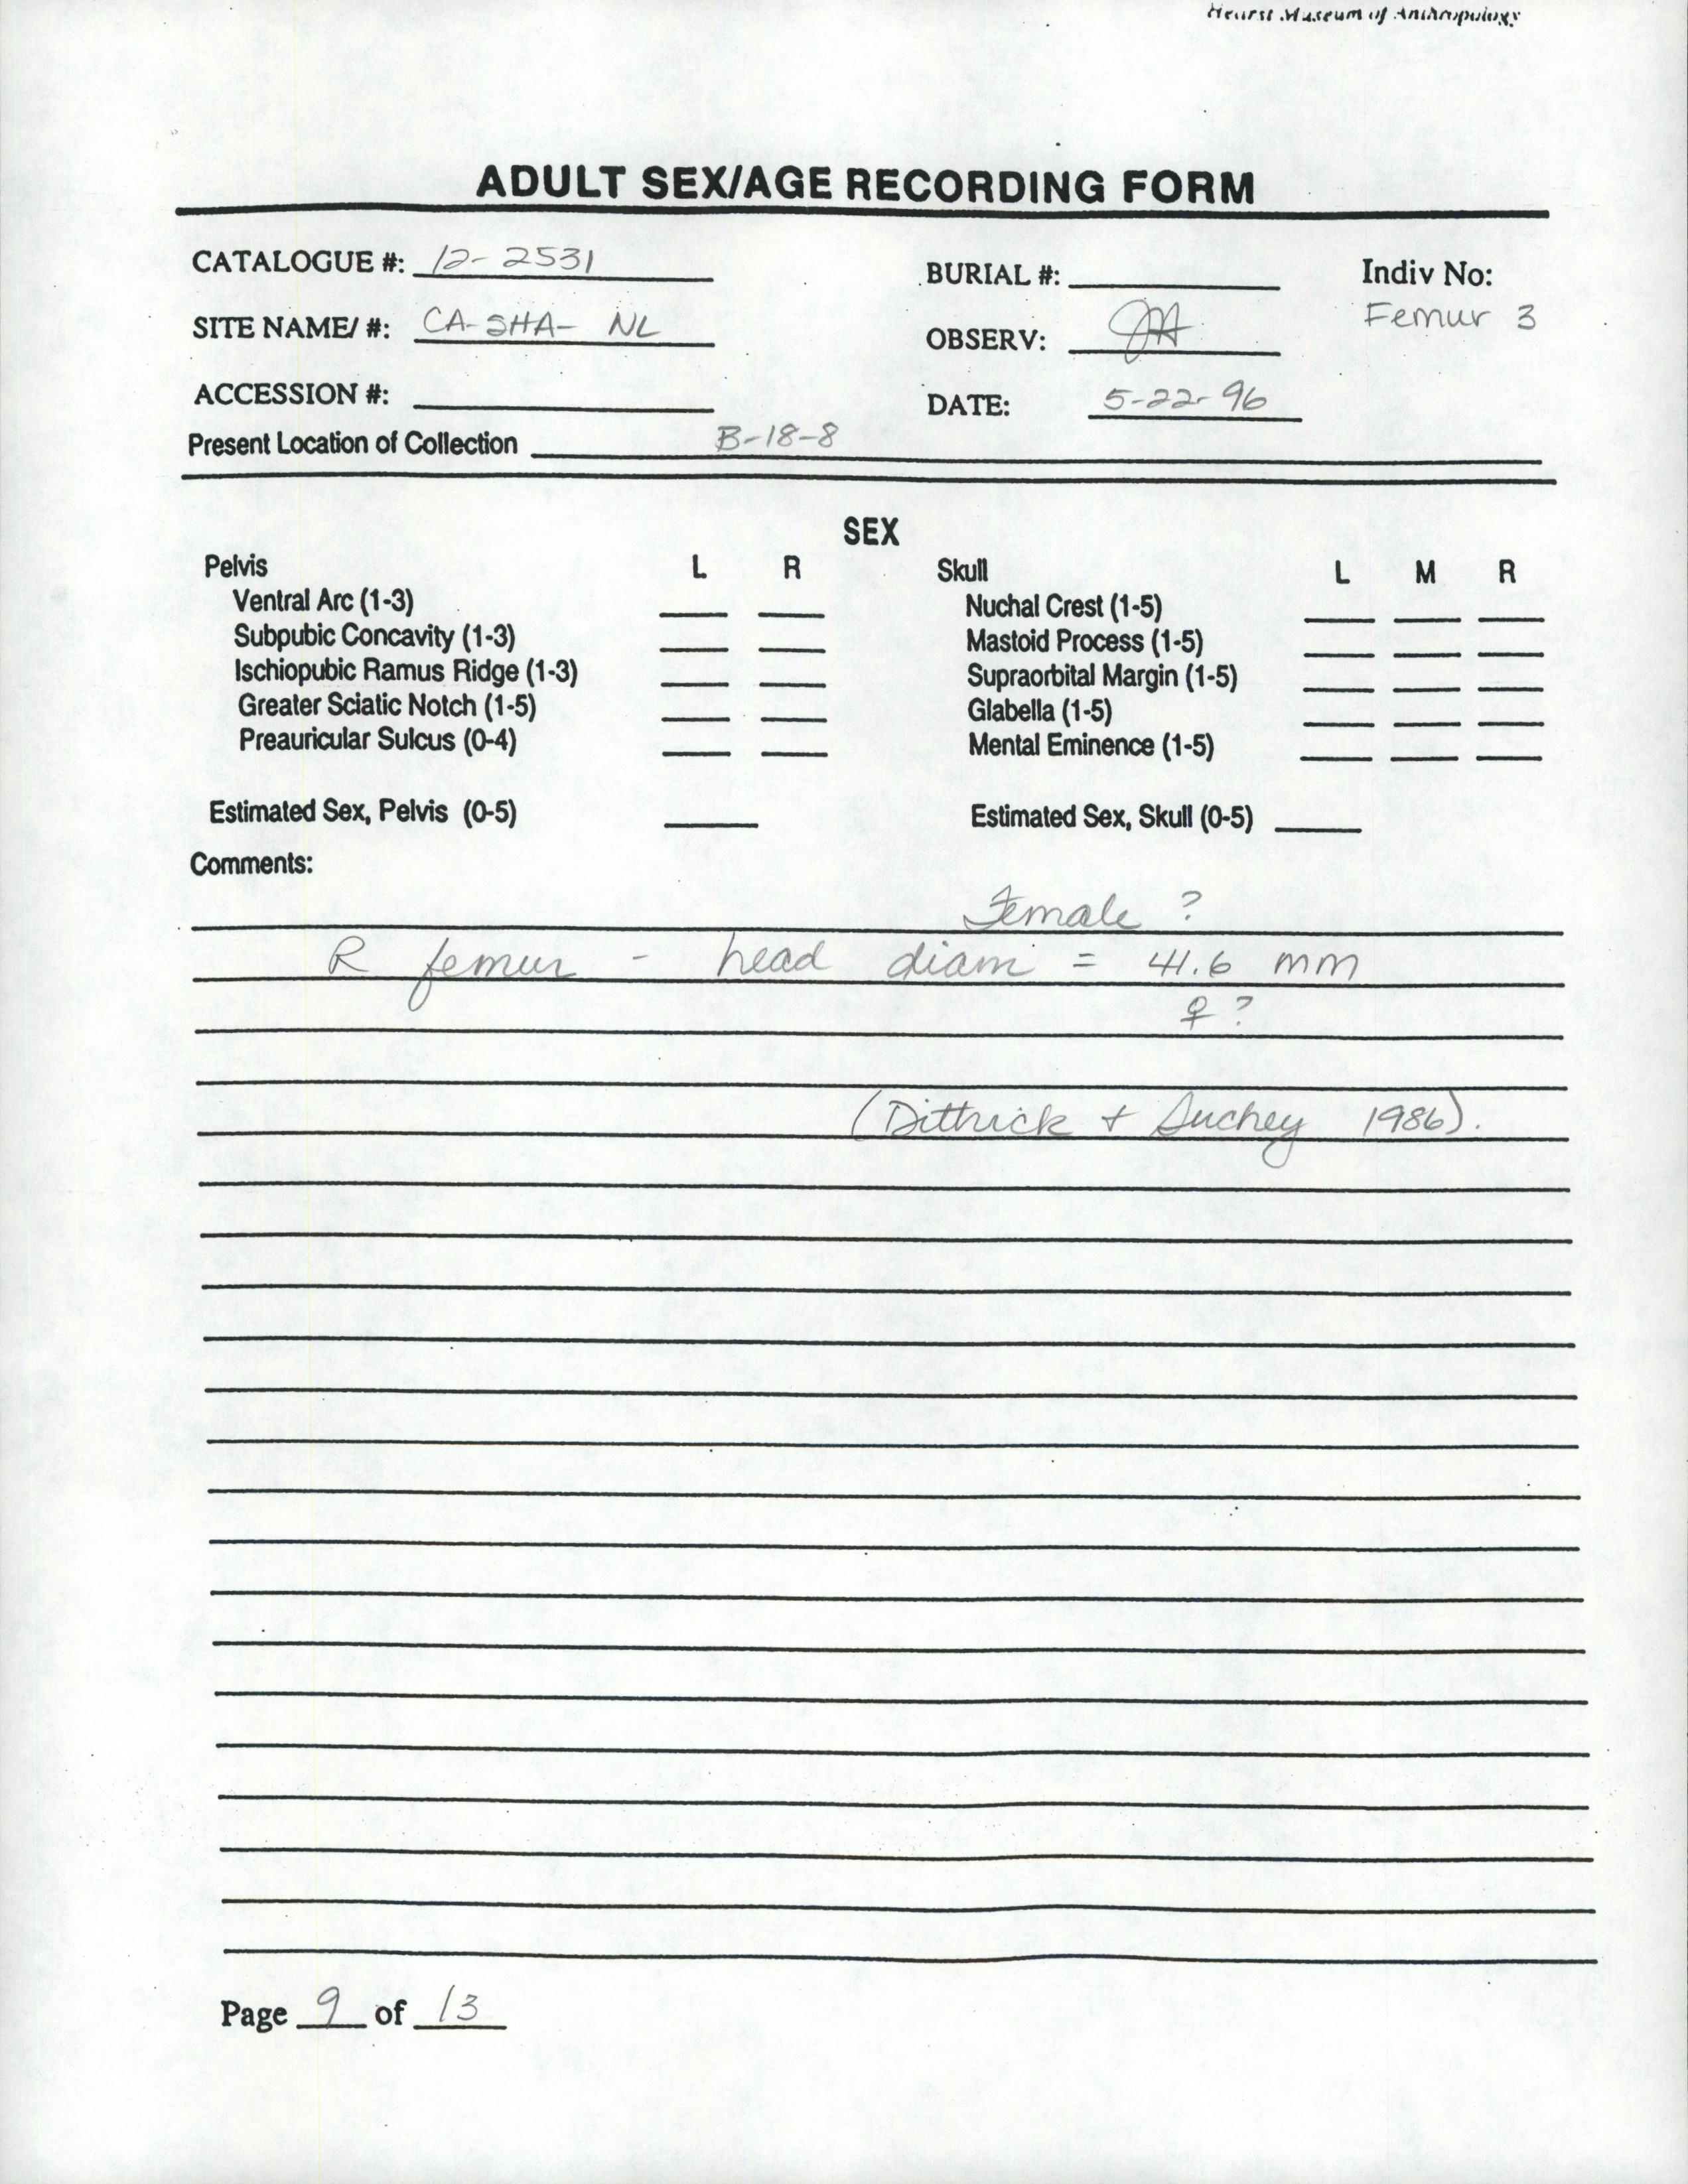 Hearst Museum of Anthropology
ADULT SEX/AGE RECORDING FORM
CATALOGUE #: 12-2531
BURIAL #:
Indiv No:
Femur 3
SITE NAME/ #: CA-SHA- NL
OBSERV: JA
ACCESSION #:
DATE: 5-22-96
Present Location of Collection B-18-8
SEX
Pelvis L R
Ventral Arc (1-3)
Subpubic Concavity (1-3)
Ischiopubic Ramus Ridge (1-3)
Greater Sciatic Notch (1-5)
Preauricular Sulcus (0-4)
Estimated Sex, Pelvis (0-5)
Skull L M R
Nuchal Crest (1-5)
Mastoid Process (1-5)
Supraorbital Margin (1-5)
Glabella (1-5)
Mental Eminence (1-5)
Estimated Sex, Skull (0-5)
Comments:
Female ?
R femur - head diam = 41.6 mm
♀ ?
(Dittrick + Suchey 1986).
Page 9 of 13